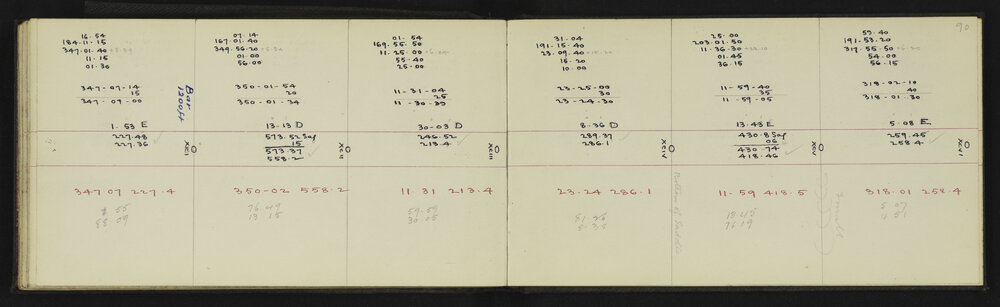 90
16.54
184.11.15
347.01.40
11.15
01.30
347-07-14
15
347-09-00
Bar
1.53 E
227.48
227.36
347 07 227.4
07.14
167.01.40
349.56.20
01.00
56.00
350-01-54
20
350-01-34
13.13 D
573.52 Sag
15
573.37
558.2
350-02 558.2
76.49
13.15
01.54
169.55.50
11.25.00
55.40
25.00
11-31-04
25
30-03 D
246.52
213.4
11.31 213.4
59.59
30.05
31.04
191-15.40
23.09.40
15.20
10.00
23-25-00
30
23-24-30
8.36 D
289.37
286.1
23.24 286.1
Bottom of Saddle
25.00
203.01.50
11-36.30
01.45
36.15
11-59-40
35
11-59-05
13.43 E
430.8 Sag
06
430.74
418.46
11-59 418.5
53.40
191.53.20
317.55.50
54.00
56.15
318-02-10
40
318-01-30
5.08 E
259.45
258.4
318.01 258.4
5 07